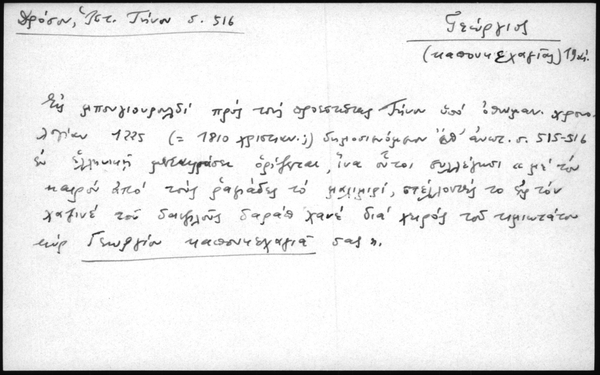 Δρόσου, Ἱστ. Τήνου σ. 516
Γεώργιος
(καπουκεχαγιᾶς) 19 αἰ.
Εἰς μπουγιουρολδί πρός τούς προεστῶτας Τήνου ὑπό ὀθωμαν. χρονο-
λογίαν 1225 (= 1810 χριστιαν.;) δημοσιευόμενον ἐνθ' ἀνωτ. σ. 515-516
ἐν ἑλληνικῇ μεταφράσει ὁρίζεται, ἵνα οὗτοι συλλέγωσι « μέ τόν
καιρόν ἀπό τούς ραγιάδες τό μαλιμιρί, στέλλοντές το εἰς τόν
χαζινέ τοῦ δαυλοῦς δαράπ χανέ διά χειρός τοῦ τιμιωτάτου
κύρ Γεωργίου καπουκεχαγιᾶ σας ».